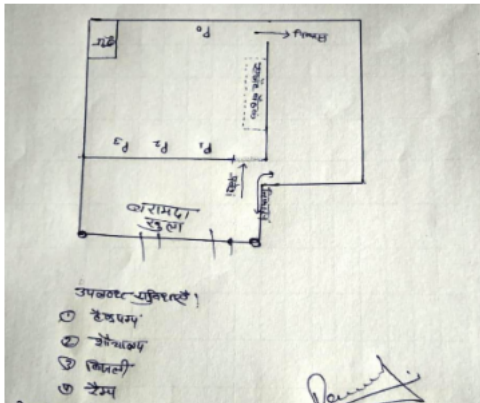 P0
निकास
P3 P2 P1
प्रवेश
निकास
बरामदा
खुला
उपलब्ध सुविधाएँ।
① हैण्डपम्प
② शौचालय
③ बिजली
④ रैम्प